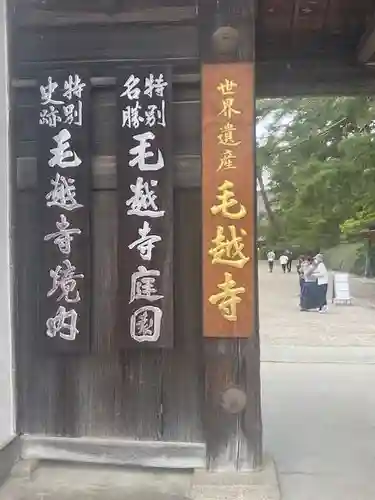 世界遺産
毛越寺
特別名勝
毛越寺庭園
特別史跡
毛越寺境内